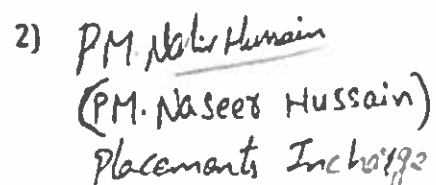 2) PM. Hussain
(PM. Naseer Hussain)
Placements Incharge